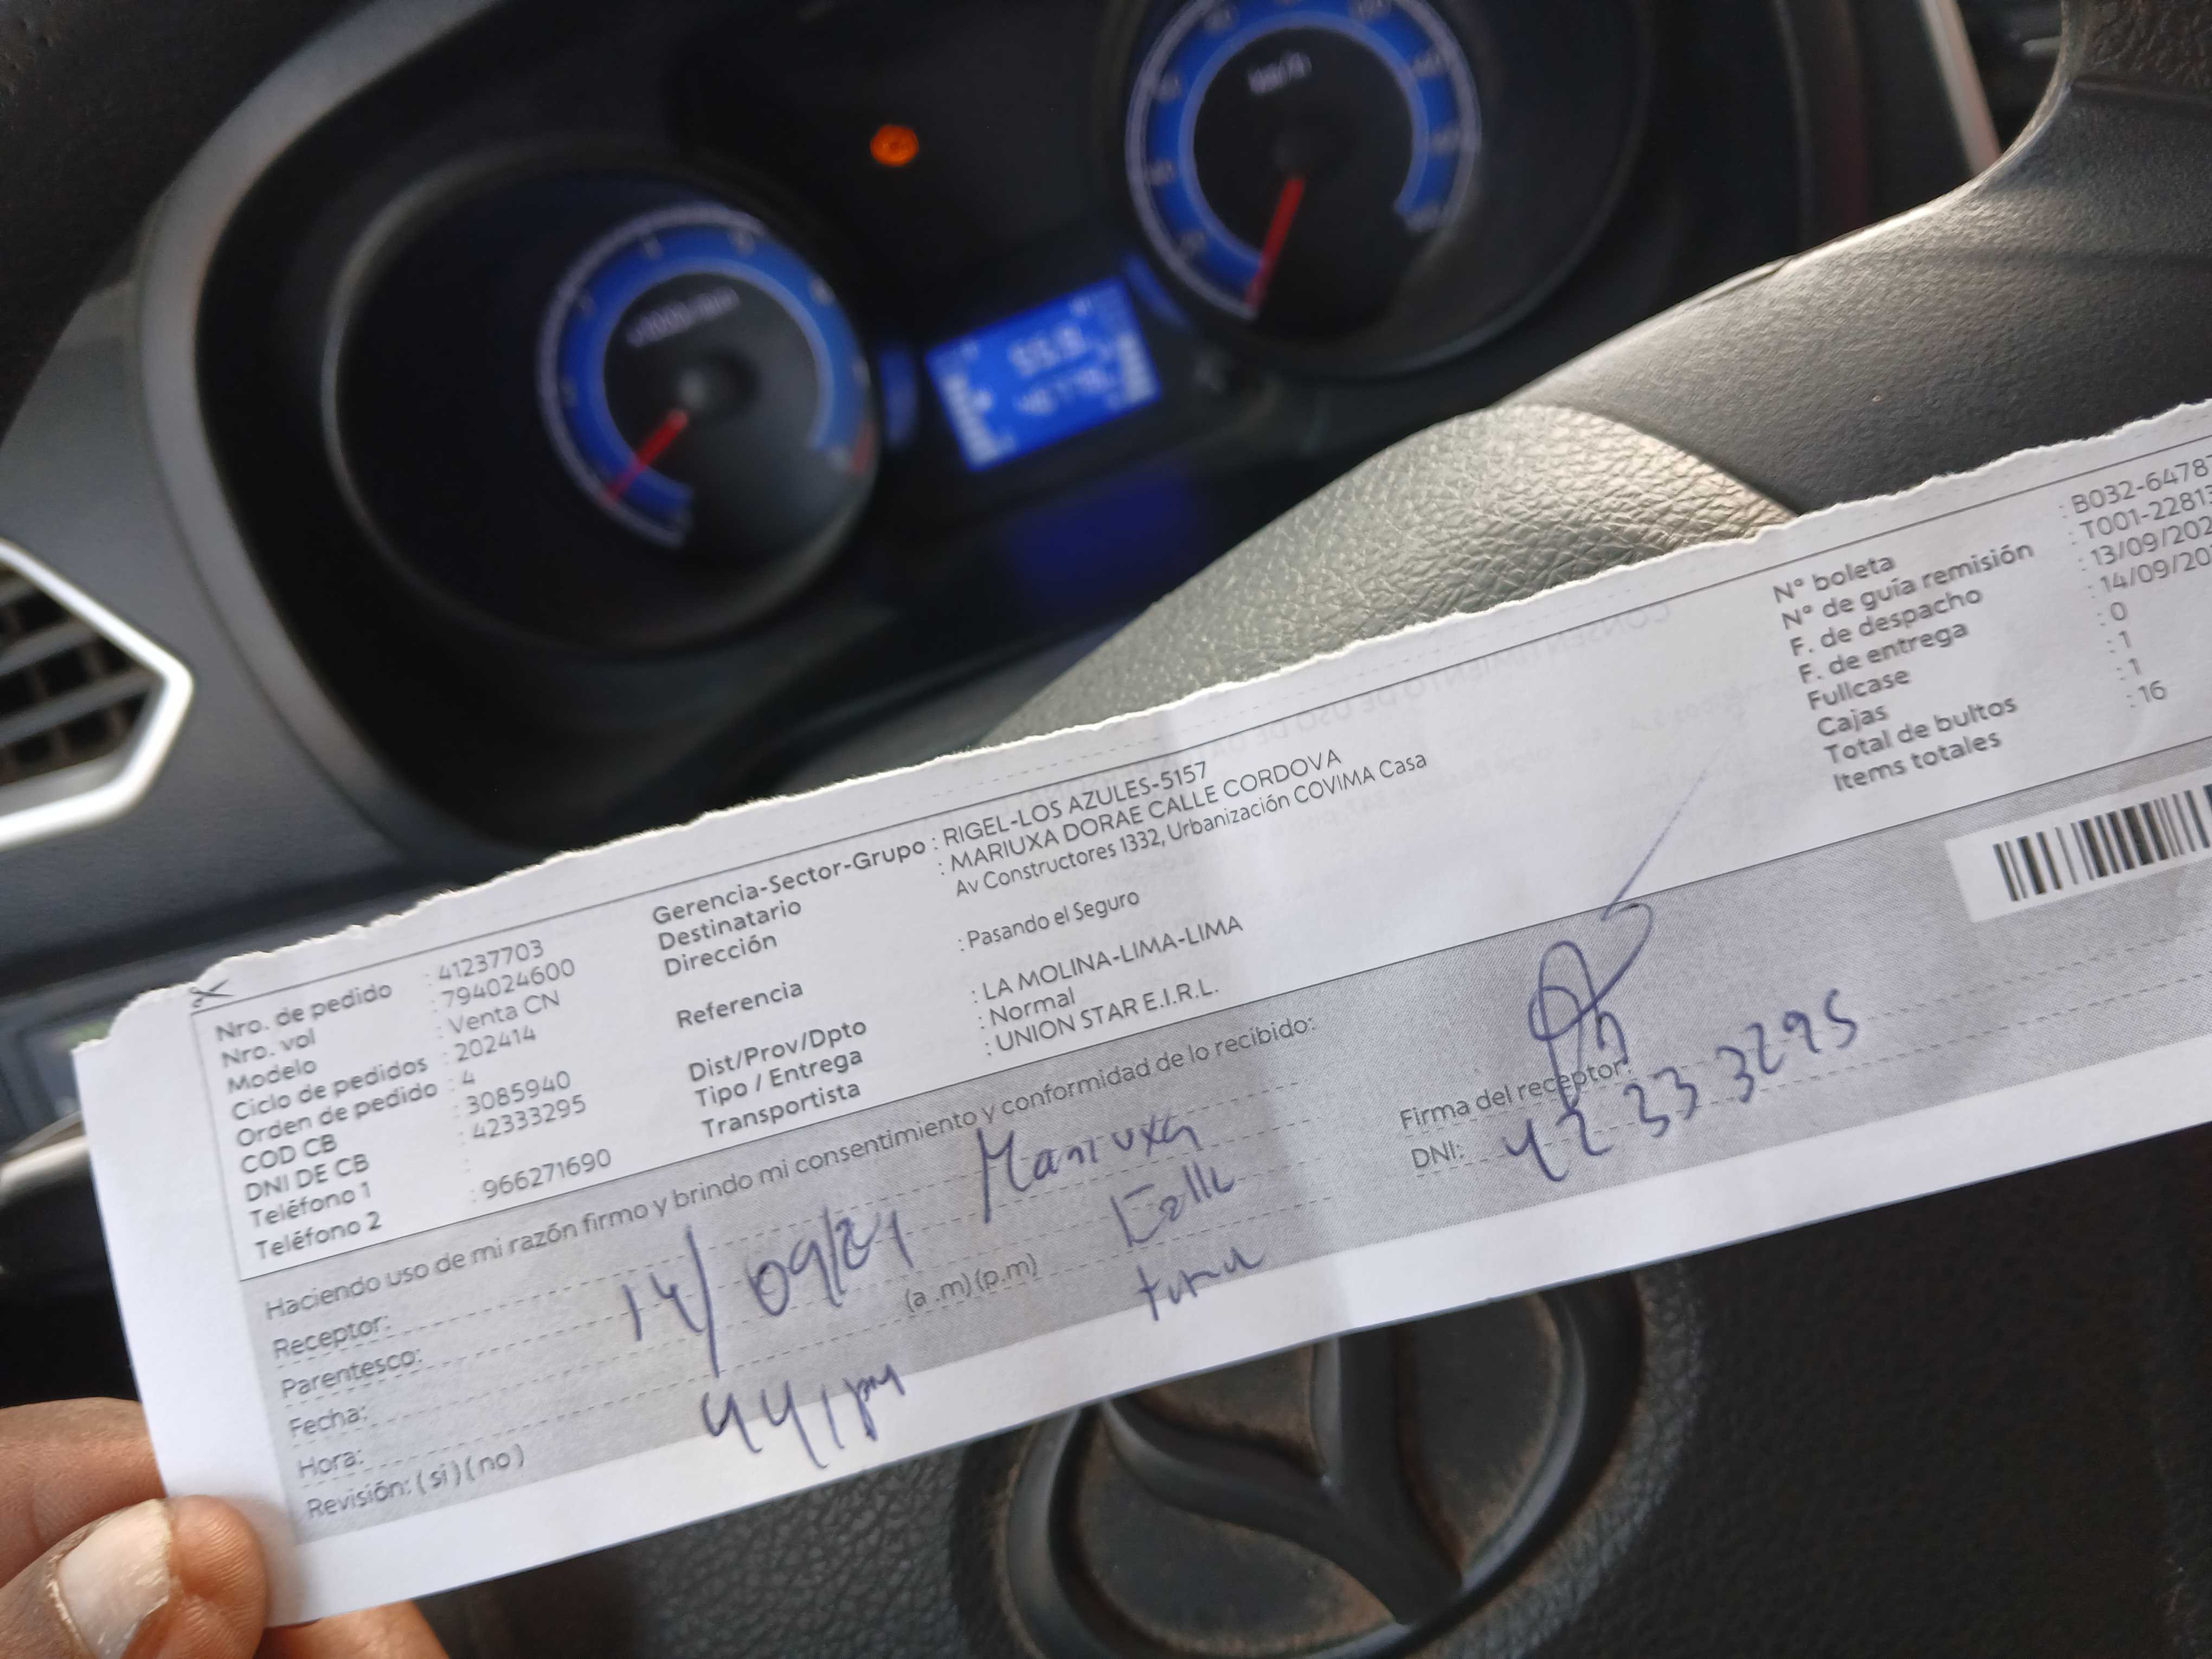 Nro. de pedido : 41237703
Nro. vol : 794024600
Modelo : Venta CN
Ciclo de pedidos : 202414
Orden de pedido : 4
COD CB : 3085940
DNI DE CB : 42333295
Teléfono 1
Teléfono 2 : 966271690
Gerencia-Sector-Grupo : RIGEL-LOS AZULES-5157
Destinatario : MARIUXA DORAE CALLE CORDOVA
Dirección Av Constructores 1332, Urbanización COVIMA Casa
Referencia : Pasando el Seguro
Dist/Prov/Dpto : LA MOLINA-LIMA-LIMA
Tipo / Entrega : Normal
Transportista : UNION STAR E.I.R.L.
N° boleta : B032-6478
N° de guía remisión : T001-2281
F. de despacho : 13/09/202
F. de entrega : 14/09/20
Fullcase : 0
Cajas : 1
Total de bultos : 1
Items totales : 16
Haciendo uso de mi razón firmo y brindo mi consentimiento y conformidad de lo recibido:
Receptor: Mariuxa
Parentesco: Calle
Fecha: 14/09/24
Hora: (a .m) (p.m)
Revisión: ( si ) ( no ) 441pm
Firma del receptor:
DNI: 42333295